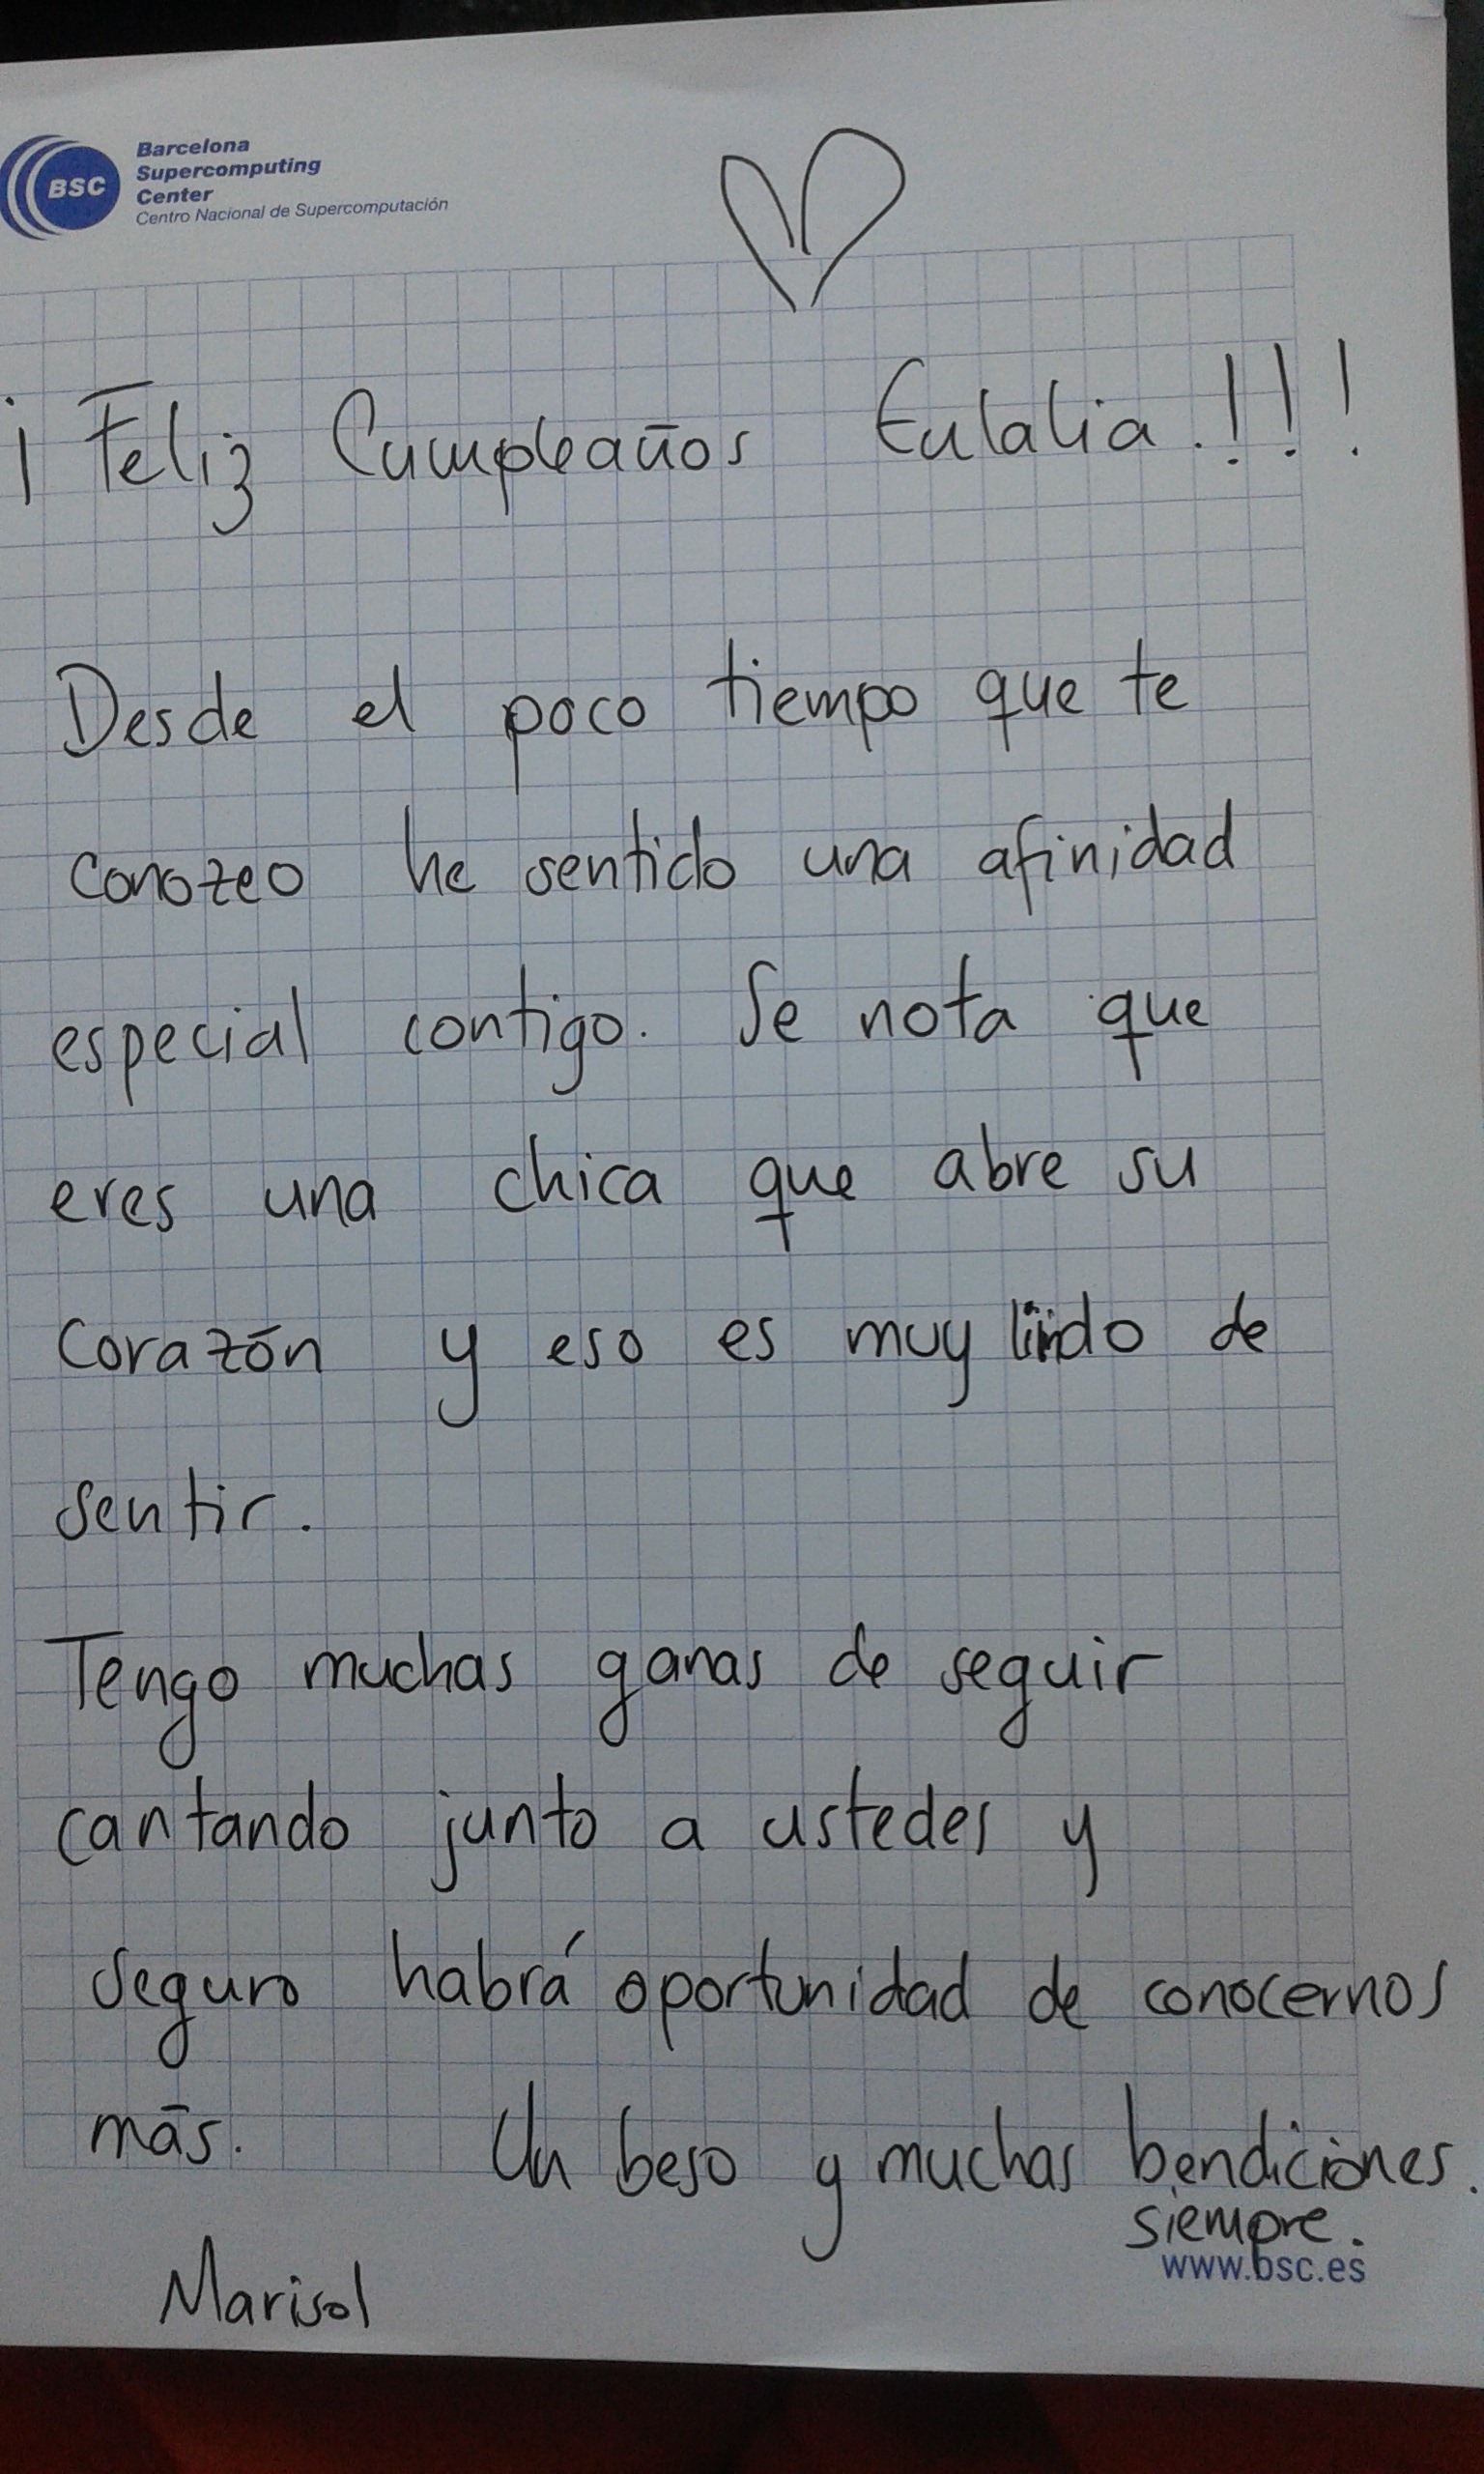 BSC
Barcelona
Supercomputing
Center
Centro Nacional de Supercomputación
¡Feliz Cumpleaños Eulalia.!!!
Desde el poco tiempo que te
conozco he sentido una afinidad
especial contigo. Se nota que
eres una chica que abre su
corazón y eso es muy lindo de
sentir.
Tengo muchas ganas de seguir
cantando junto a ustedes y
seguro habrá oportunidad de conocernos
más. Un beso y muchas bendiciones.
siempre.
www.bsc.es
Marisol